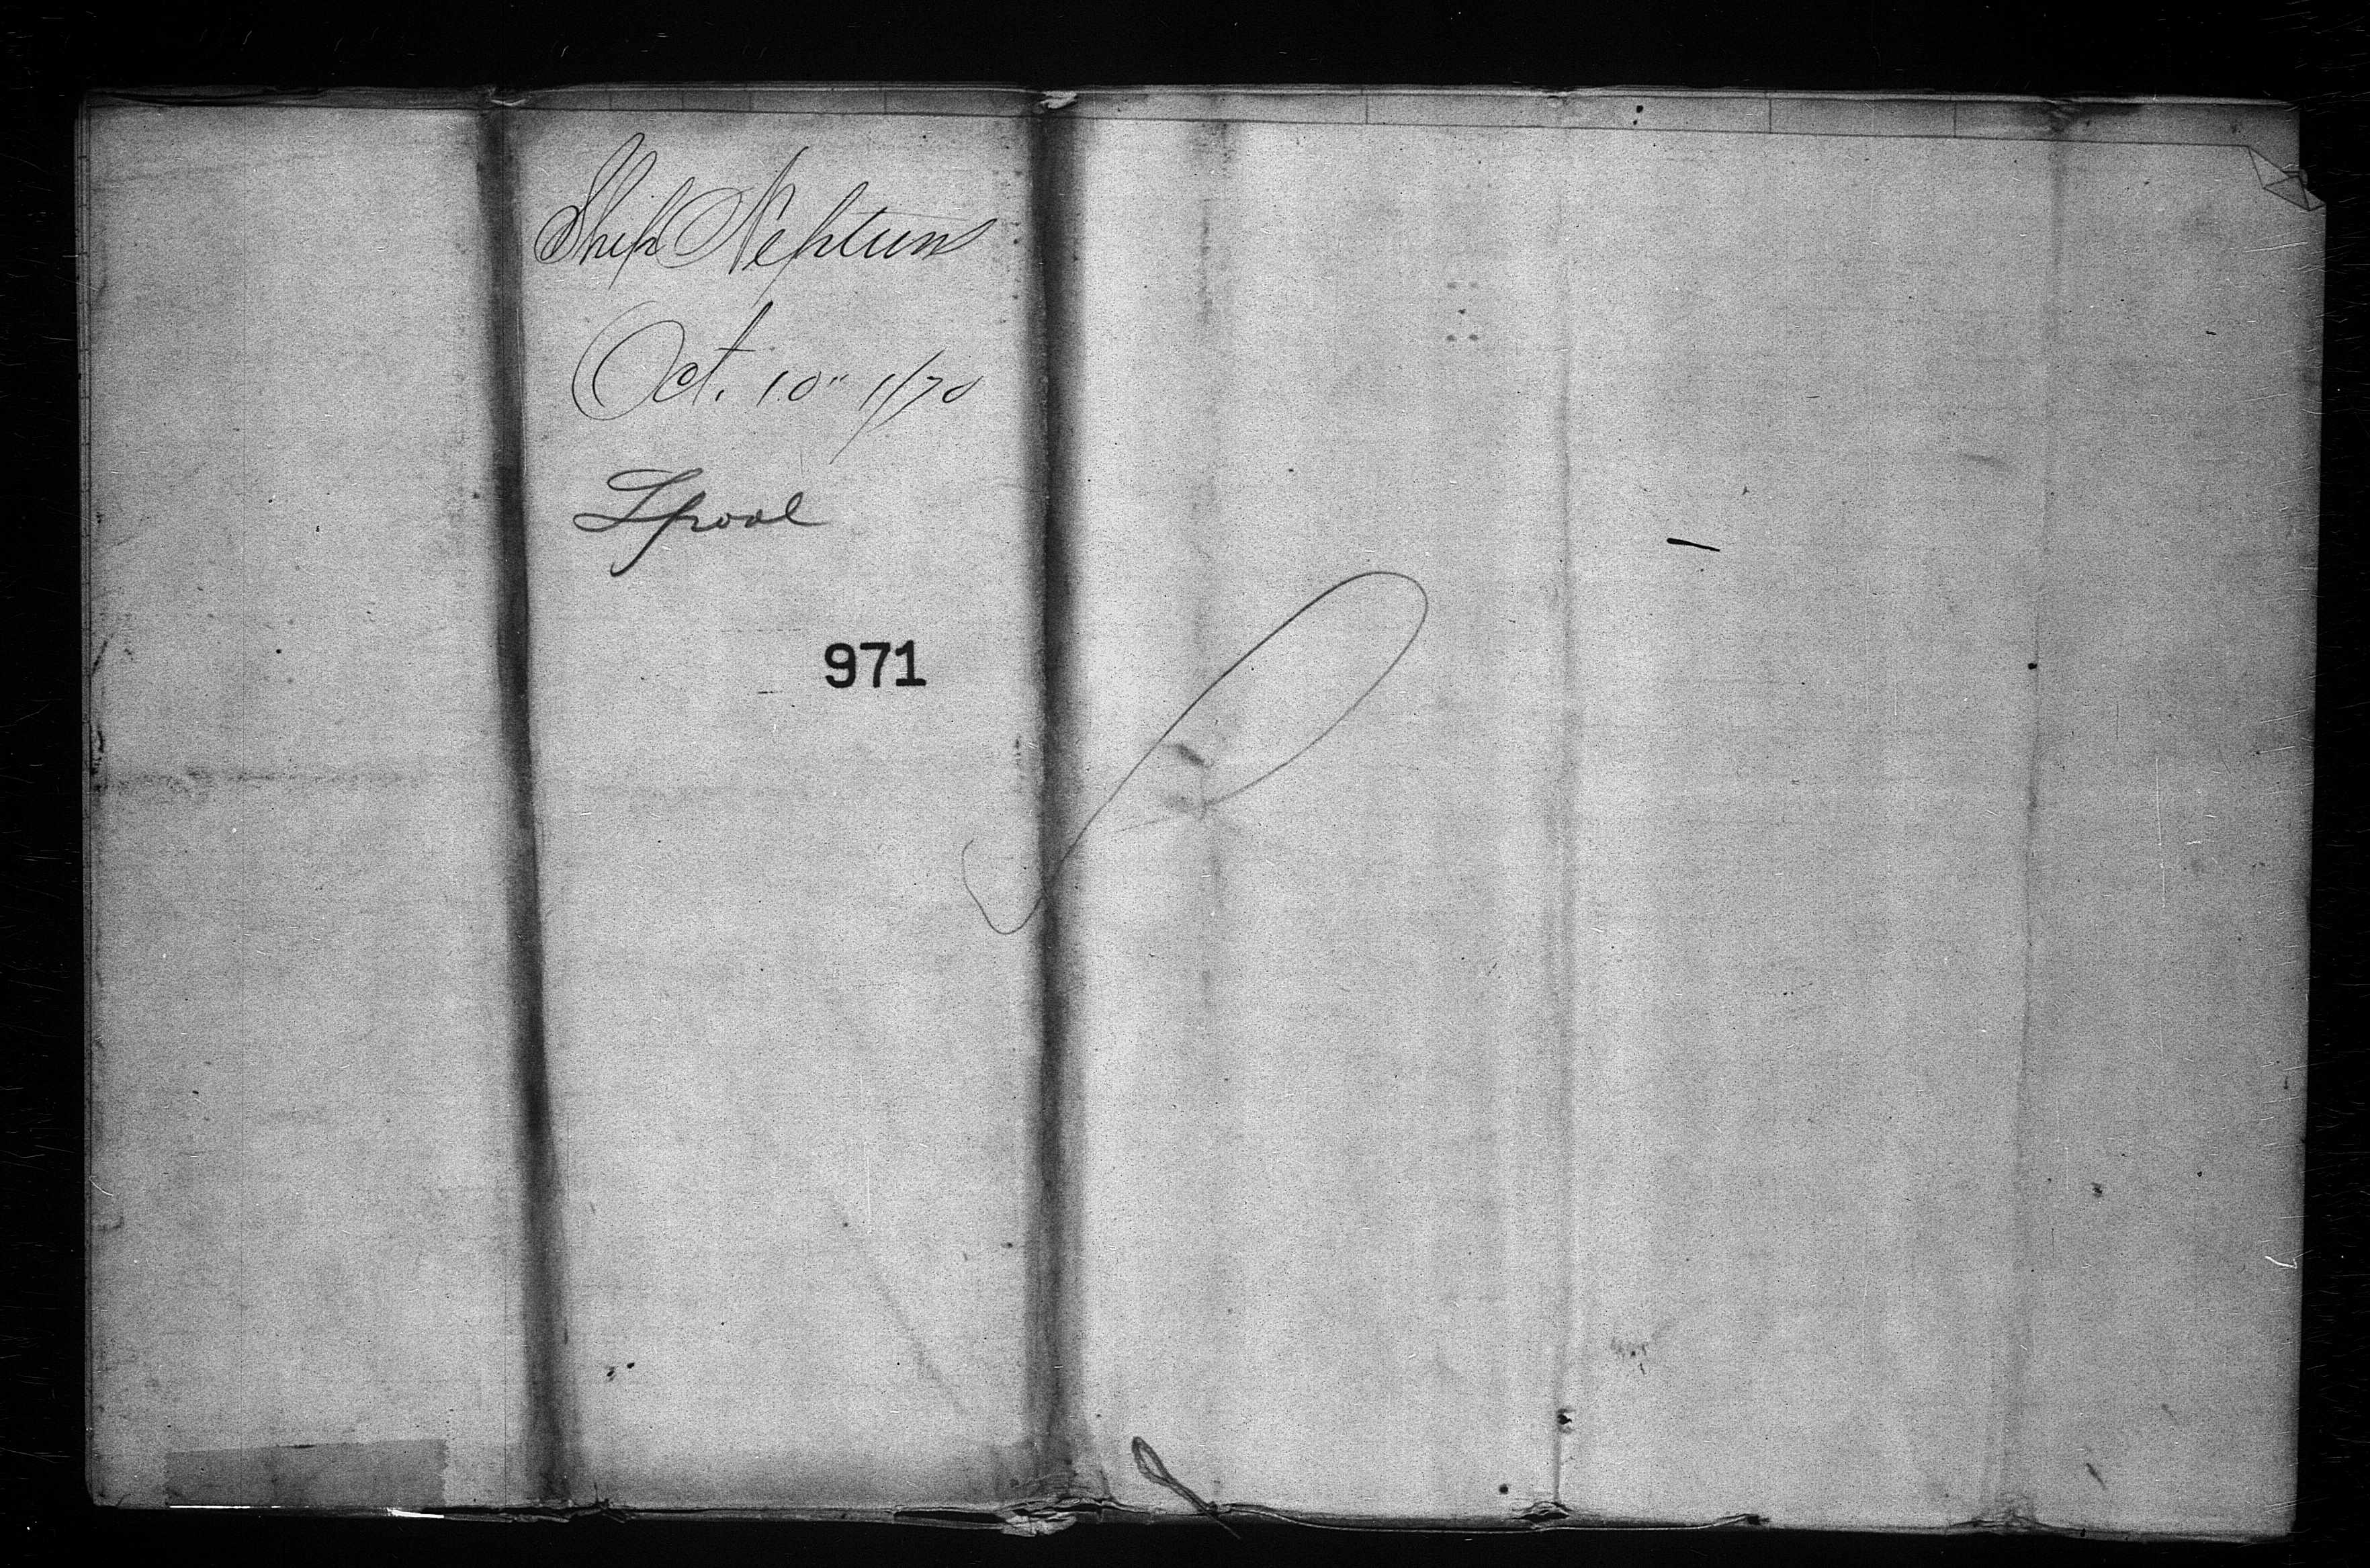 Ship Neptune
Oct. 10" 1870
Lpool
971